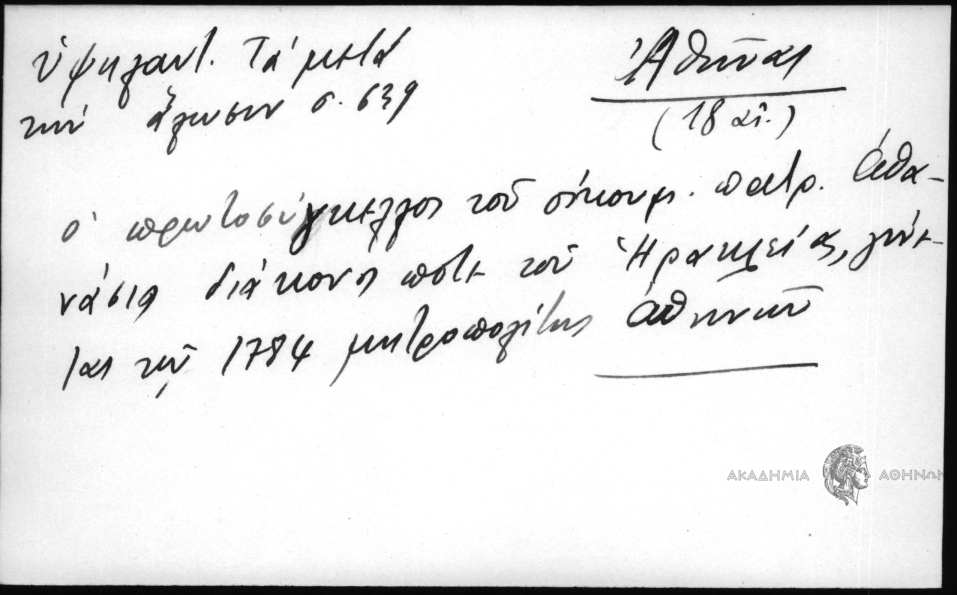 Ὑψηλαντ. Τά μετά
τήν ἅλωσιν σ. 639
Ἀθῆναι
(18 αἰ.)
ὁ πρωτοσύγκελλος τοῦ οἰκουμ. πατρ. Ἀθα-
νάσιος διάκονος ποτε τοῦ Ἡρακλείας, γίνε-
ται τῷ 1784 μητροπολίτης Ἀθηνῶν
ΑΚΑΔΗΜΙΑ ΑΘΗΝΩΝ